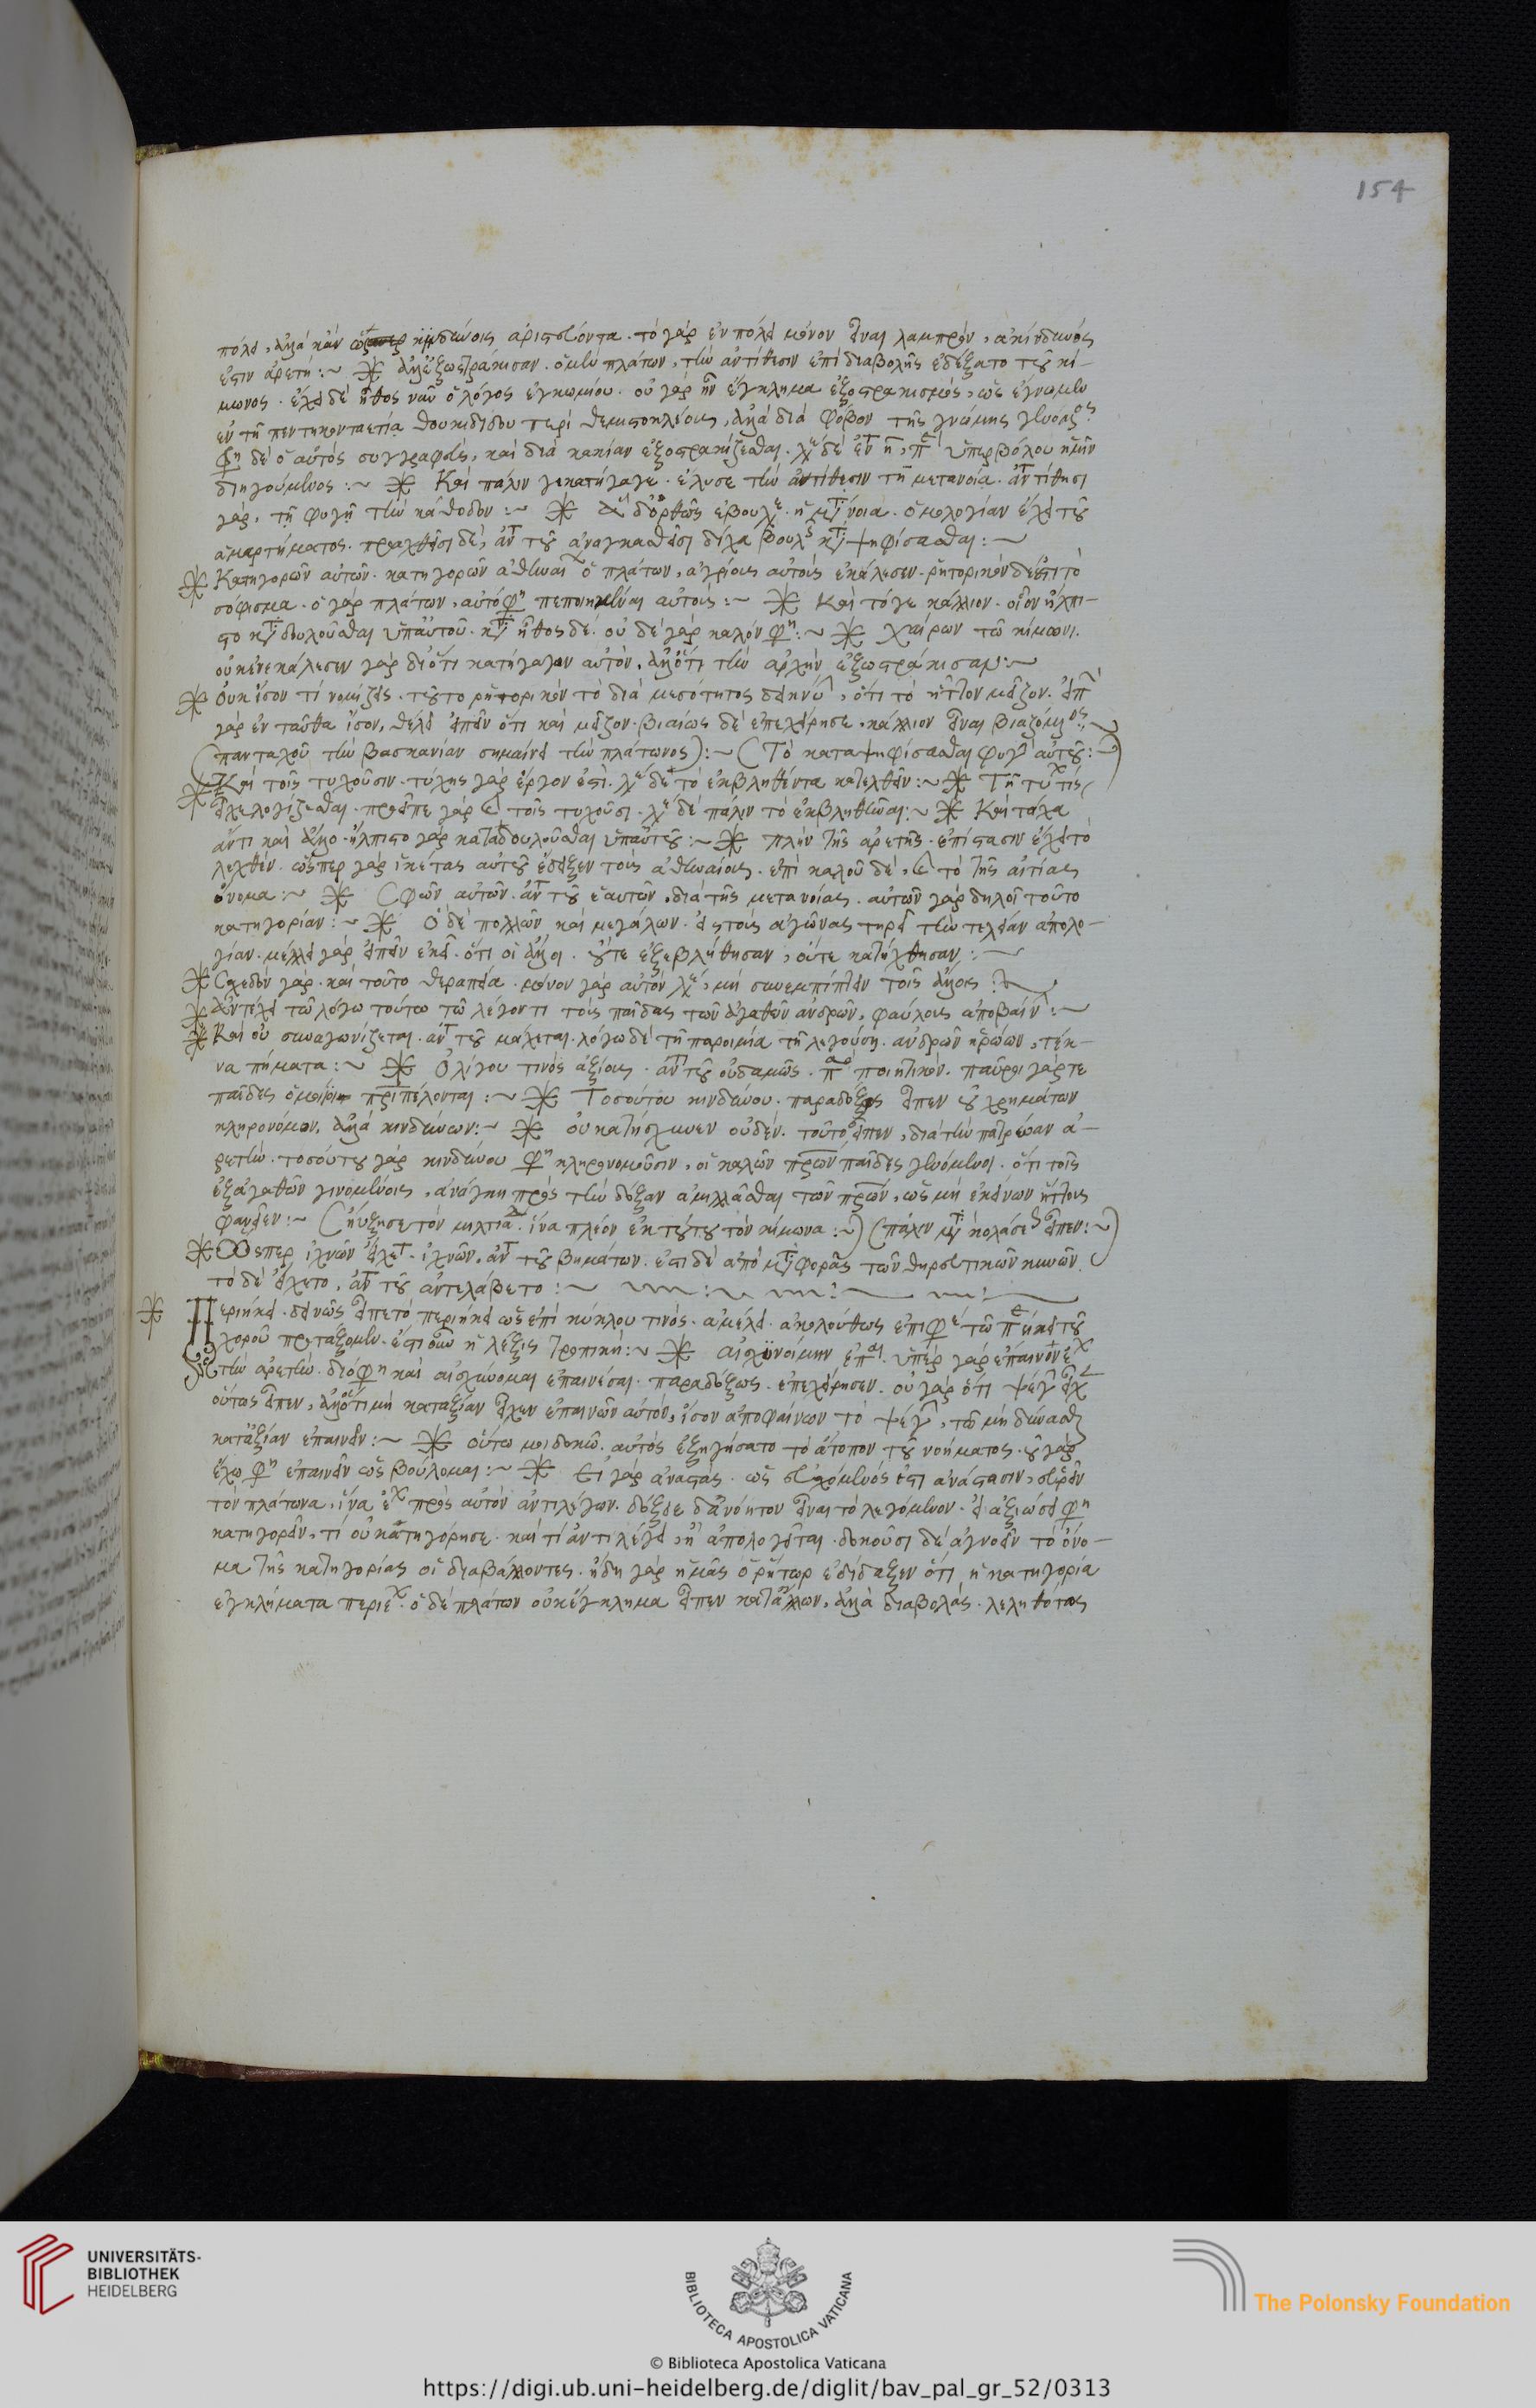 154
πόλει, ἀλλὰ κἂν κινδύνοις ἀριστεύοντα. τὸ γὰρ ἐν πόλει μόνον εἶναι λαμπρὸν, ἀκίνδυνός
ἐστιν ἀρετή :~ ἀλλ' ἐξωστράκισαν. ὁ μὲν πλάτων, τὴν ἀντίθεσιν ἐπὶ διαβολῆς ἐδέξατο τοῦ κί-
μωνος. ἔχει δὲ ἦθος νῦν ὁ λόγος ἐγκωμίου. οὐ γὰρ ἦν ἔγκλημα ἐξοστρακισμὸς, ὡς ἔγνωμεν
ἐν τῇ πεντηκονταετίᾳ θουκιδίδου περὶ θεμιστοκλέους, ἀλλὰ διὰ φόβον τῆς γνώμης
δὲ ὁ αὐτὸς συγγραφεὺς, καὶ διὰ κακίαν ἐξοστρακίζεσθαι. ὑπερβόλου ἡμῖν
διηγούμενος :~ Καὶ πάλιν γε κατήγαγε. ἔλυσε τὴν ἀντίθεσιν τῇ μετανοίᾳ. ἀντίθησι
γὰρ, τῇ φυγῇ τὴν κάθοδον :~ ὁμολογίαν ἔχει τοῦ
ἁμαρτήματος. τοῦ ἀναγκασθεῖσι δίχα ψηφίσασθαι :~
Κατηγορῶν αὐτῶν. κατηγορῶν ὁ πλάτων, ἀγρίους αὐτοὺς ἐκάλεσεν. ῥητορικὸν δέ ἐστι τὸ
σόφισμα. ὁ γὰρ πλάτων, αὐτὸ πεποιηκέναι αὐτούς :~ Καὶ τό γε κάλλιον. οἷον ἤλπι-
στο δουλοῦσθαι ὑπ' αὐτοῦ. ἦθος δέ. οὐδὲ γὰρ καλὸν :~ χαίρων τῷ κίμωνι.
οὐκ ἐνεκάλεσεν γὰρ διότι κατήγαγον αὐτὸν, ἀλλ' ὅτι τὴν ἀρχὴν ἐξωστράκισαν :~
Οὐκ ἴσον τί νομίζεις. τοῦτο ῥητορικὸν τὸ διὰ μεσότητος, ὅτι τὸ ἧττον μεῖζον.
γὰρ ἐνταῦθα ἴσον, θέλει εἰπεῖν ὅτι καὶ μεῖζον. βιαίως δὲ ἐπεχείρησε, κάλλιον εἶναι
(πανταχοῦ τὴν βασκανίαν σημαίνει τὴν πλάτωνος) :~ (Τὸ καταψηφίσασθαι φυγὴν αὐτοῦ :~)
Καὶ τοῖς τυχοῦσιν. τύχης γὰρ ἔργον ἐστί. τὸ ἐκβληθέντα κατελθεῖν :~
προεῖπε γὰρ τοῖς τυχοῦσι. πάλιν τὸ ἐκβληθῆναι :~ Καὶ τάχα
ἄν τι καὶ ἄλλο. ἤλπιστο γὰρ καταδουλοῦσθαι ὑπ' αὐτοῦ :~ πλὴν τῆς ἀρετῆς. ἐπίστασιν ἔχει τὸ
λεχθέν. ὥσπερ γὰρ ἱκέτας αὐτοῦ ἔδειξεν τοὺς ἀθηναίους. ἐπὶ καλοῦ δὲ, τὸ τῆς αἰτίας
ὄνομα :~ Σφῶν αὐτῶν. τοῦ ἑαυτῶν, διὰ τῆς μετανοίας. αὐτῶν γὰρ δηλοῖ τοῦτο
κατηγορίαν :~ Ὁ δὲ πολλῶν καὶ μεγάλων. εἰς τοὺς ἀγῶνας τηρεῖ τὴν τελείαν ἀπολο-
γίαν. μέλλει γὰρ εἰπεῖν ἐκεῖ. ὅτι οἱ ἄλλοι. οὔτε ἐξεβλήθησαν, οὔτε κατήχθησαν :~
Σχεδὸν γὰρ. καὶ τοῦτο θεραπεία. μόνον γὰρ αὐτὸν, μὴ συνεμπίπτειν τοῖς ἄλλοις :~
Ἀντέχει τῷ λόγῳ τούτῳ τῷ λέγοντι τοὺς παῖδας τῶν ἀγαθῶν ἀνδρῶν, φαύλους ἀποβαίνειν :~
Καὶ οὐ συναγωνίζεται. ἀντὶ τοῦ μάχεται. λόγῳ δὲ τῇ παροιμίᾳ τῇ λεγούσῃ. ἀνδρῶν ἡρώων, τέκ-
να πήματα :~ Ὀλίγου τινὸς ἀξίους. ἀντὶ τοῦ οὐδαμῶς. ποιητικόν. παῦροι γάρ τε
παῖδες ὅμοιοι πατρὶ πέλονται :~ Τοσούτου κινδύνου. παραδόξως εἶπεν οὐ χρημάτων
κληρονόμον, ἀλλὰ κινδύνων :~ Οὐ κατῄσχυνεν οὐδέν. τοῦτο εἶπεν, διὰ τὴν πατρῴαν ἀ-
ρετήν. τοσούτου γὰρ κινδύνου κληρονομοῦσιν, οἱ καλῶν πρων παῖδες γενόμενοι. ὅτι τοῖς
ἐξ ἀγαθῶν γινομένοις, ἀνάγκη πρὸς τὴν δόξαν ἁμιλλᾶσθαι τῶν πρων, ὡς μὴ ἐκείνων ἥττους
φανεῖεν :~ (ηὔξησε τὸν μιλτιά. ἵνα πλέον ἐκ τούτου τὸν κίμωνα :~) (πάλιν εἶπεν :~)
Ὥσπερ ἰχνῶν εἴχετο. ἰχνῶν, ἀντὶ τοῦ βημάτων. ἔστι δὲ ἀπὸ μεταφορᾶς τῶν θηρευτικῶν κυνῶν.
τὸ δὲ εἴχετο, ἀντὶ τοῦ ἀντελάβετο :~
Περιήκει. δεινῶς εἶπε τὸ περιήκει ὡς ἐπὶ κύκλου τινός. ἀμέλει. ἀκολούθως
χοροῦ προτάξομεν. ἡ λέξις τροπική :~ αἰσχυνοίμην. ὑπὲρ γὰρ ἔπαινον
τὴν ἀρετήν. διό καὶ αἰσχύνομαι ἐπαινέσαι. παραδόξως. ἐπεχείρησεν. οὐ γὰρ ὅτι
οὕτως εἶπεν, ἀλλ' ὅτι μὴ κατ' ἀξίαν εἶχεν ἐπαινεῖν αὐτόν, ἴσον ἀποφαίνων τὸ ψέγειν, τῷ μὴ δύνασθαι
κατ' ἀξίαν ἐπαινεῖν :~ οὕτω μοι δοκῶ. αὐτὸς ἐξηγήσατο τὸ ἄτοπον τοῦ νοήματος. οὐ γὰρ
ἔχω ἐπαινεῖν ὡς βούλομαι :~ Εἰ γὰρ ἀναστὰς. ὡς εὐχόμενός ἐστι ἀνάστασιν, εὑρεῖν
τὸν πλάτωνα, ἵνα πρὸς αὐτὸν ἀντιλέγων. δόξειε δ' ἀνόητον εἶναι τὸ λεγόμενον. εἰ ἀξιώσει
κατηγορεῖν, τί οὐ κατηγόρησε. καὶ τί ἀντιλέγει, ἢ ἀπολογεῖται. δοκοῦσι δὲ ἀγνοεῖν τὸ ὄνο-
μα τῆς κατηγορίας οἱ διαβάλλοντες. ἤδη γὰρ ἡμᾶς ὁ ῥήτωρ ἐδίδαξεν ὅτι ἡ κατηγορία
ἐγκλήματα περιέχει. ὁ δὲ πλάτων οὐκ ἔγκλημα εἶπεν κατ' ἄλλων, ἀλλὰ διαβολάς. λεληθότως
UNIVERSITÄTS-
BIBLIOTHEK
HEIDELBERG
BIBLIOTECA APOSTOLICA VATICANA
The Polonsky Foundation
© Biblioteca Apostolica Vaticana
https://digi.ub.uni-heidelberg.de/diglit/bav_pal_gr_52/0313